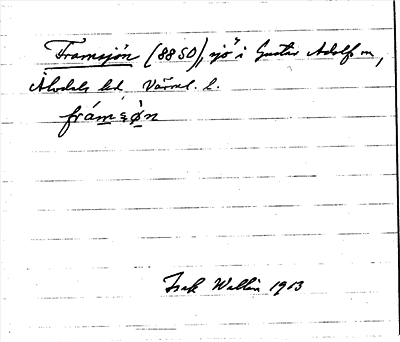 Framsjön (8850), sjö i Gustav Adolfs sn,
Älvdals hd, Värml. l.
frámsø̀n
Isak Wallin 1913